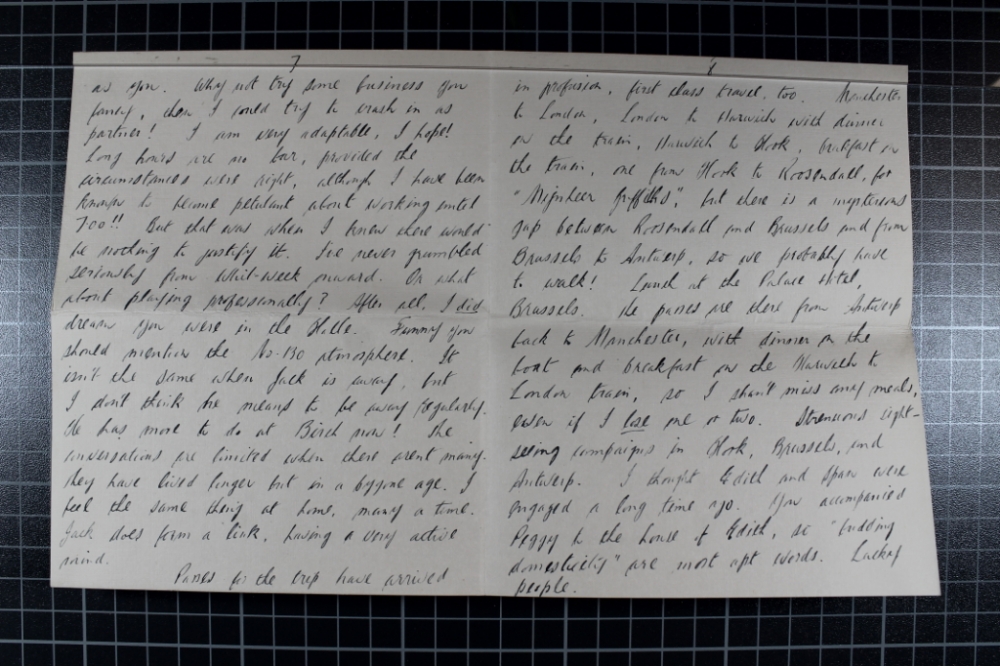 7
as you. Why not try some business you
fancy, then I could try to crash in as
partner! I am very adaptable, I hope!
Long hours are no bar, provided the
circumstances were right, although I have been
known to become petulant about working until
7.00!! But that was when I knew there would
be nothing to justify it. I've never grumbled
seriously from Whit-week onward. Or what
about playing professionally? After all, I did
dream you were in the Halle. Funny you
should mention the atmosphere. It
isn't the same when Jack is away, but
I don't think he means to be away regularly.
He has more to do at Birch now! The
conversations are limited when there aren't many.
They have lived longer but in a bygone age. I
feel the same thing at home, many a time.
Jack does form a link, having a very active
mind.
Passes for the trip have arrived
8
in profusion, first class travel, too. Manchester
to London, London to Harwich with dinner
on the train, Harwich to Hook, breakfast on
the train, one from Hook to Roosendall, for
"Mijnheer Griffiths", but there is a mysterious
gap between Roosendall and Brussels and from
Brussels to Antwerp, so we probably have
to walk! Lunch at the Palace Hotel,
Brussels. The passes are there from Antwerp
back to Manchester, with dinner on the
boat and breakfast on the Harwich to
London train, so I shan't miss any meals,
even if I lose one or two. Strenuous sight-
seeing campaigns in Hook, Brussels, and
Antwerp. I thought Edith and were
engaged a long time ago. You accompanied
Peggy to the house of Edith, so "budding
domesticity" are most apt words. Lucky
people.